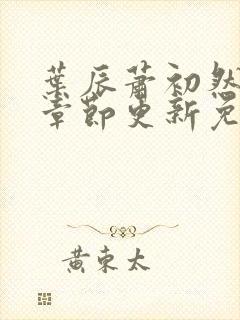 葉辰蕭初然
章節更新免
黃東太